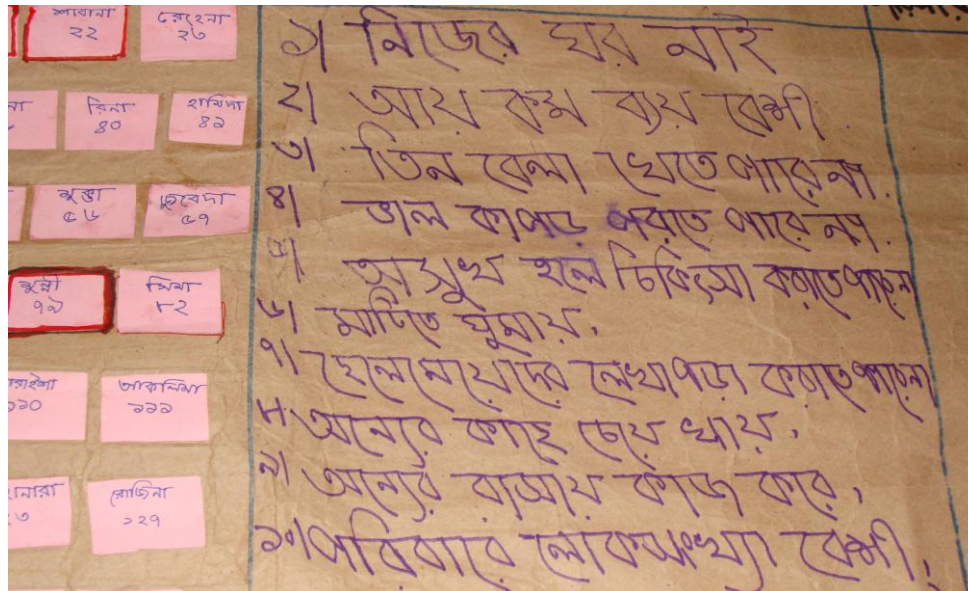 শাবানা
২২
রেহেনা
২৩
রিনা
৪০
হামিদা
৪১
মুক্তা
৫৬
জুবেদা
৫৭
মুন্নী
৭১
লিমা
৮২
১১০
তাসলিমা
১১১
রোজিনা
১২৭
১। নিজের ঘর নাই
২। আয় কম ব্যয় বেশী
৩। তিন বেলা খেতে পারে না.
৪। ভাল কাপড় পরতে পারে না.
৫। অসুখ হলে চিকিৎসা করাতে পারেনা
৬। মাটিতে ঘুমায়.
৭। ছেলেমেয়েদের লেখাপড়া করাতে পারেনা
৮। অন্যের কাছে চেয়ে খায়.
৯। অন্যের বাসায় কাজ করে,
১০। পরিবারে লোকসংখ্যা বেশী.